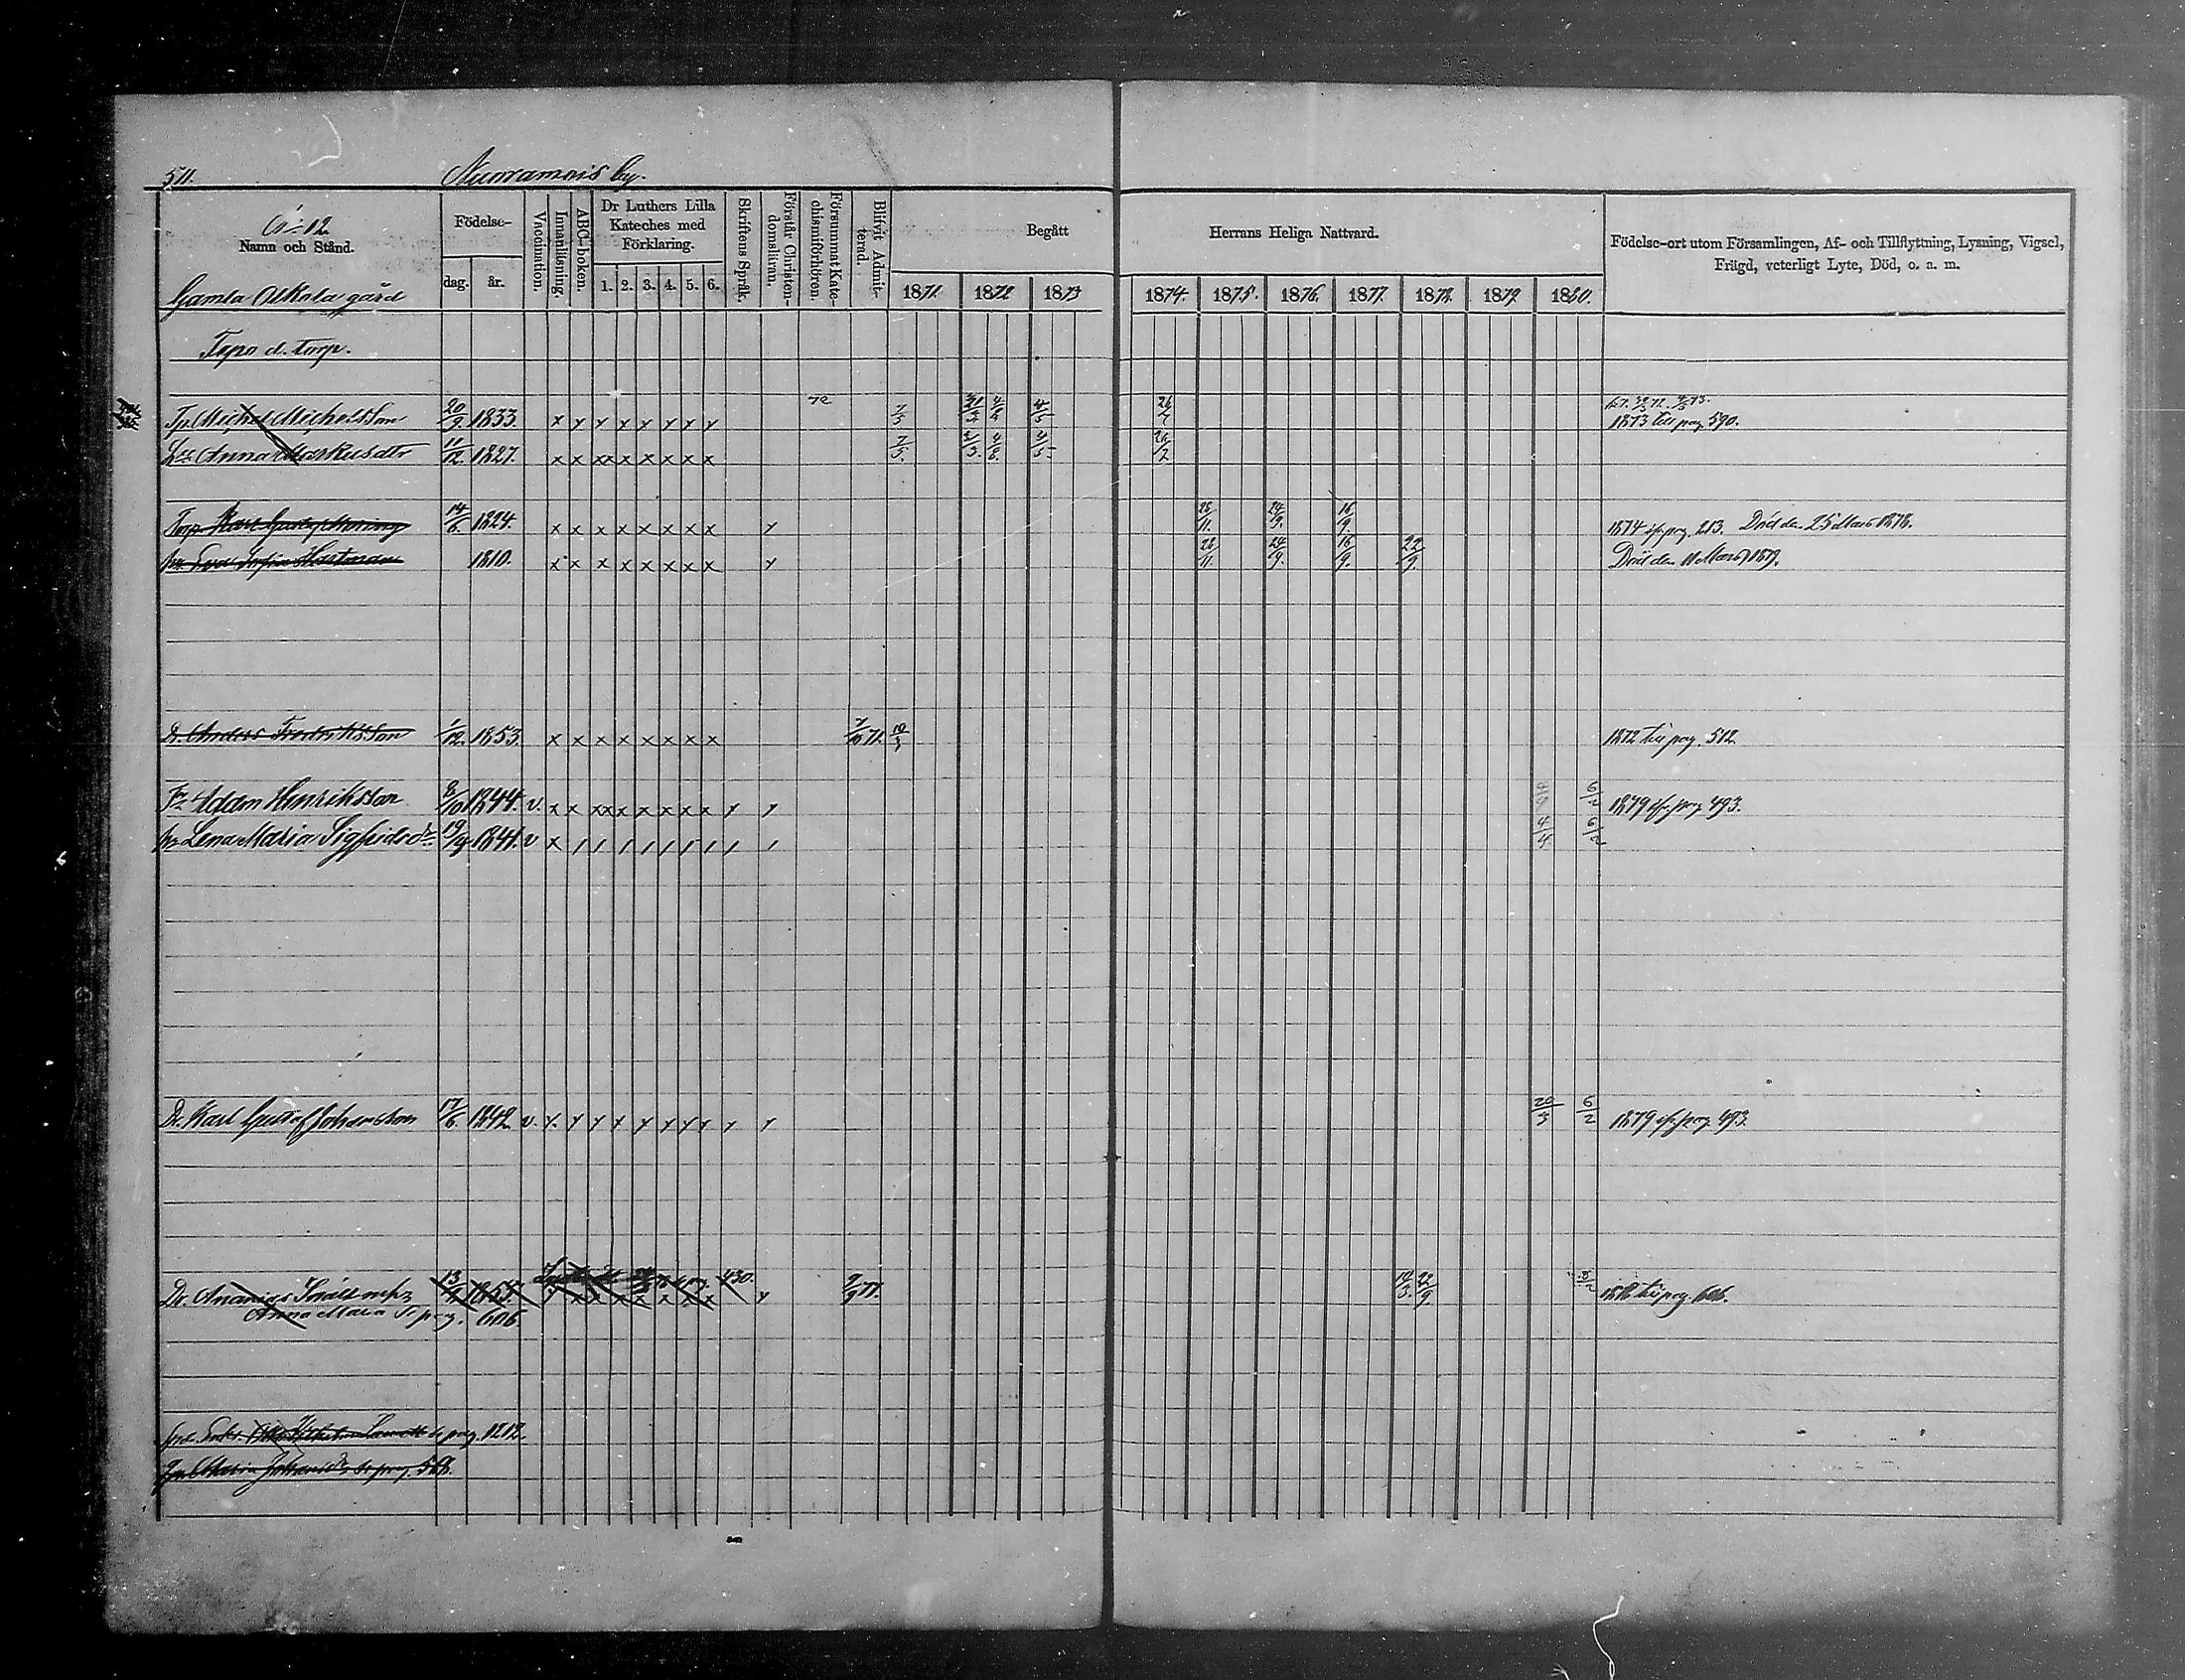 511. Nuoramois by.
№ 12
Namn och Stånd.
Födelse-
dag. år.
Vaccination.
Innanläsning.
ABC-boken.
Dr Luthers Lilla
Kateches med
Förklaring.
1. 2. 3. 4. 5. 6.
Skriftens Språk.
Förstår Christen-
domsläran.
Försummat Kate-
chismiförhören.
Blifvit Admit-
terad.
Begått
1871. 1872 1873
Herrans Heliga Nattvard.
1874. 1875. 1876. 1877. 1878. 1879 1880.
Födelse-ort utom Församlingen, Af- och Tillflyttning, Lysning, Vigsel,
Frägd, veterligt Lyte, Död, o. a. m.
Gamla Olkola gård
Tepo d. torp.
Tp. Michel Michelsson 20/9 1833. x y y x y y y y 72 7/5 4/5 26/7 1873 till pag. 590.
Anna Markusdtr 11/12. 1827. x x xx x x x x x 7/5. 4/5 26/7
Torp. Karl Gustaf 14/6. 1824. x x x x x x x x y 28/11. 24/9. 16/9. 1874 ifr. pag. 213. Död den 25 Mars 1878.
Eva Sofia Hartman 1810. x x x x x x x x y 28/11. 24/9. 16/9. 22/9. Död den 11 Mars 1879.
Dr. Anders Fredriksson 1/12. 1853. x x x x x x x x 71. 10/3 1872 till pag. 512
Adam Henriksson 8/10 1844. v. x x xx x x x x x y y 6/2 1879 ifr. pag. 493.
Lena Maria Sigfridsdr 19/4 1841. v x / / / / / / / / / 4/4 6/2
Dr. Karl Gustaf Johansson 17/6. 1842 v. y. y y y y y y y y y 20/3 6/2 1879 ifr. pag. 493.
430.
Dr. Ananias 13/ 1857. x x x x x x x y 9/9 77. 14/3 22/9. 1878 till pag. 606.
Anna Maria pag. 606.
pag. 1212.
Maria Johansdr se pag. 588.